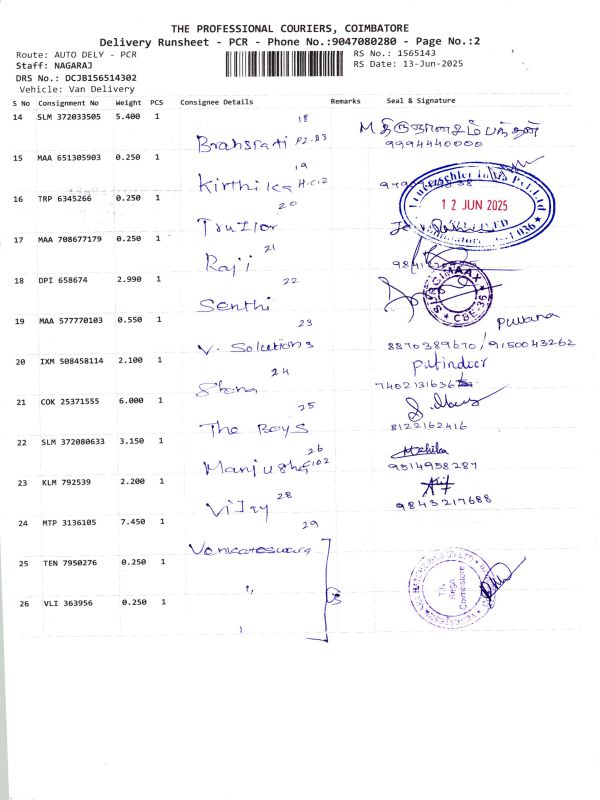 THE PROFESSIONAL COURIERS, COIMBATORE
Delivery Runsheet - PCR - Phone No.:9047080280 - Page No.:2
Route: AUTO DELY - PCR
RS No.: 1565143
Staff: NAGARAJ
RS Date: 13-Jun-2025
DRS No.: DCJB156514302
Vehicle: Van Delivery
S No Consignment No Weight PCS Consignee Details Remarks Seal & Signature
14 SLM 372033505 5.400 1 18
9994440000
15 MAA 651305903 0.250 1 19
Kirthika H.C.2
16 TRP 6345266 0.250 1 20
12 JUN 2025
17 MAA 708677179 0.250 1 21
Raji
18 DPI 658674 2.990 1 22
Senthi
SURGIMAAX
CBE-35
19 MAA 577770103 0.550 1 23
V. Solutions 8870389670 / 9150043262
20 IXM 508458114 2.100 1 24
21 COK 25371555 6.000 1 25
The Boys 8122162416
22 SLM 372080633 3.150 1 26
Manjusha C102 9514958287
23 KLM 792539 2.200 1 28
Vijay 9843217688
24 MTP 3136105 7.450 1 29
Venkateswara
25 TEN 7950276 0.250 1
"
26 VLI 363956 0.250 1